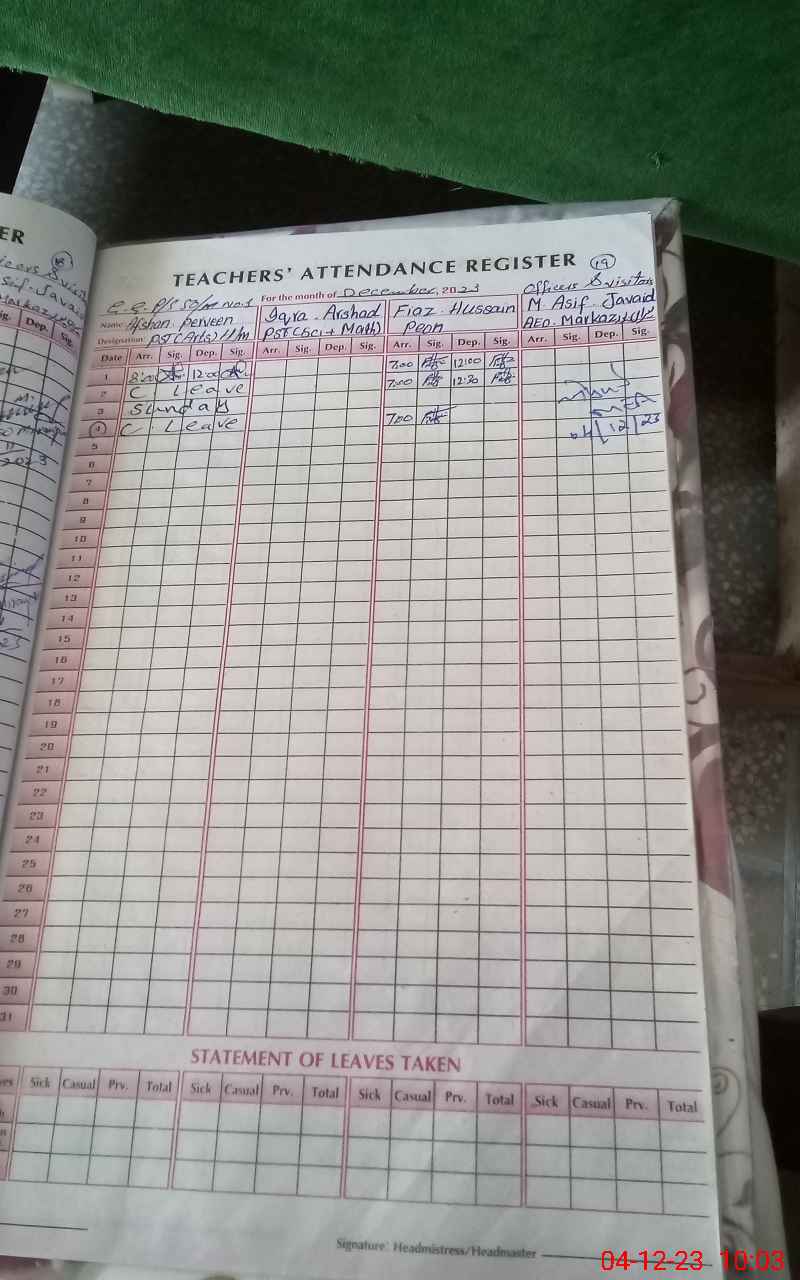 ER
TEACHERS' ATTENDANCE REGISTER 19
For the month of December, 2023
Officers & visitors
Name Afshan Perveen Iqra Arshad Fiaz Hussain M Asif Javaid
Designation PST (Arts) H/m PST (Sci + Math) Peon AEO. Markaz
Date Arr. Sig. Dep. Sig. Arr. Sig. Dep. Sig. Arr. Sig. Dep. Sig. Arr. Sig. Dep. Sig.
1 8:00 12:00 7:00 12:00
2 C Leave 7:00 12:30
3 Sunday
4 C. Leave 7:00 04/12/23
5
6
7
8
9
10
11
12
13
14
15
16
17
18
19
20
21
22
23
24
25
26
27
28
29
30
31
STATEMENT OF LEAVES TAKEN
Sick Casual Prv. Total Sick Casual Prv. Total Sick Casual Prv. Total Sick Casual Prv. Total
Signature: Headmistress/Headmaster
04-12-23 10:03